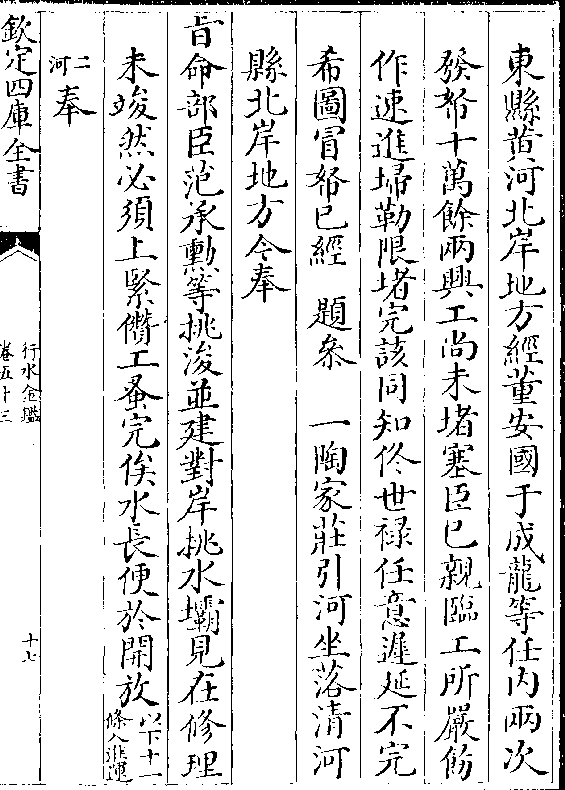 東縣黄河北岸地方經董安國于成龍等任内兩次
發帑十萬餘兩興工尚未堵塞臣已親臨工所嚴飭
作速進埽勒限堵完該同知佟世禄任意遲延不完
希圖冒帑已經　題叅　一陶家莊引河坐落清河
縣北岸地方今奉
旨命部臣范承勲等挑浚並建對岸挑水壩見在修理
未竣然必須上緊儹工蚤完俟水長便於開放以下十一條入淮運
二河奉
欽定四庫全書
行水金鑑
卷五十三
十七